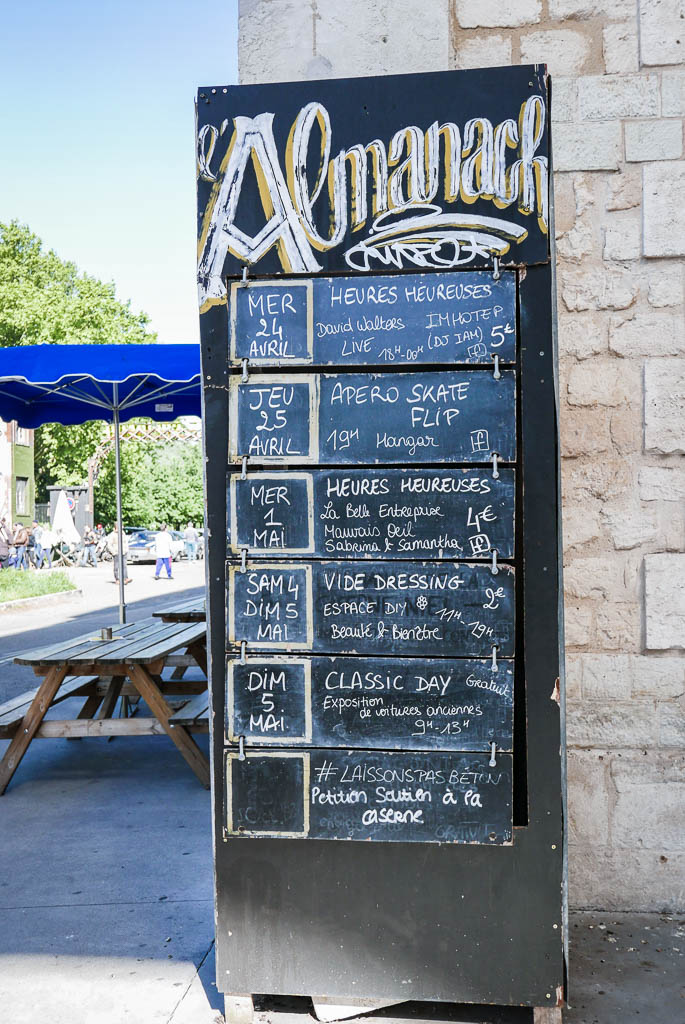 l'Almanach
MER
24
AVRIL
HEURES HEUREUSES
David Walters IMHOTEP
LIVE 18H-00H (DJ IAM) 5€
JEU
25
AVRIL
APERO SKATE
FLIP
19H Hangar
MER
1
MAI
HEURES HEUREUSES
La Belle Entreprise 4€
Mauvais Oeil
Sabrina & Samantha
SAM 4
DIM 5
MAI
VIDE DRESSING 2€
ESPACE DIY 11H-19H
Beauté & Bienêtre
DIM
5
MAI
CLASSIC DAY Gratuit
Exposition
de voitures anciennes
9H-13H
#LAISSONSPASBÉTON
Petition Soutien à la
caserne